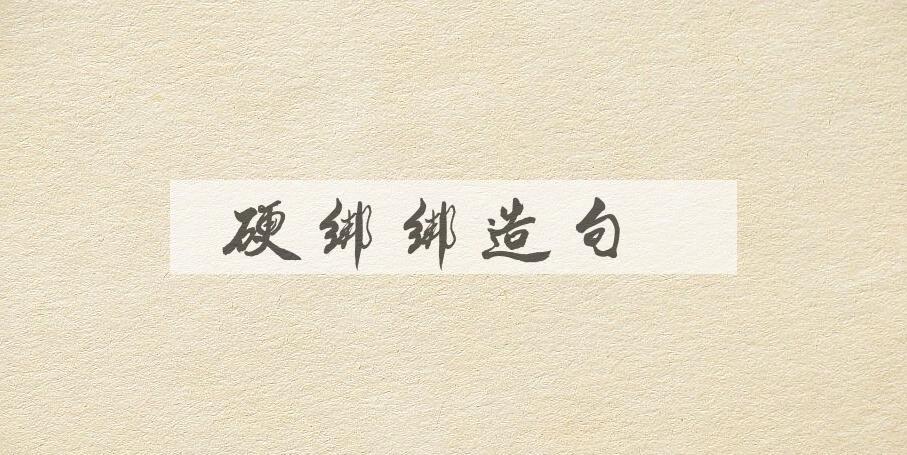 硬绑绑造句